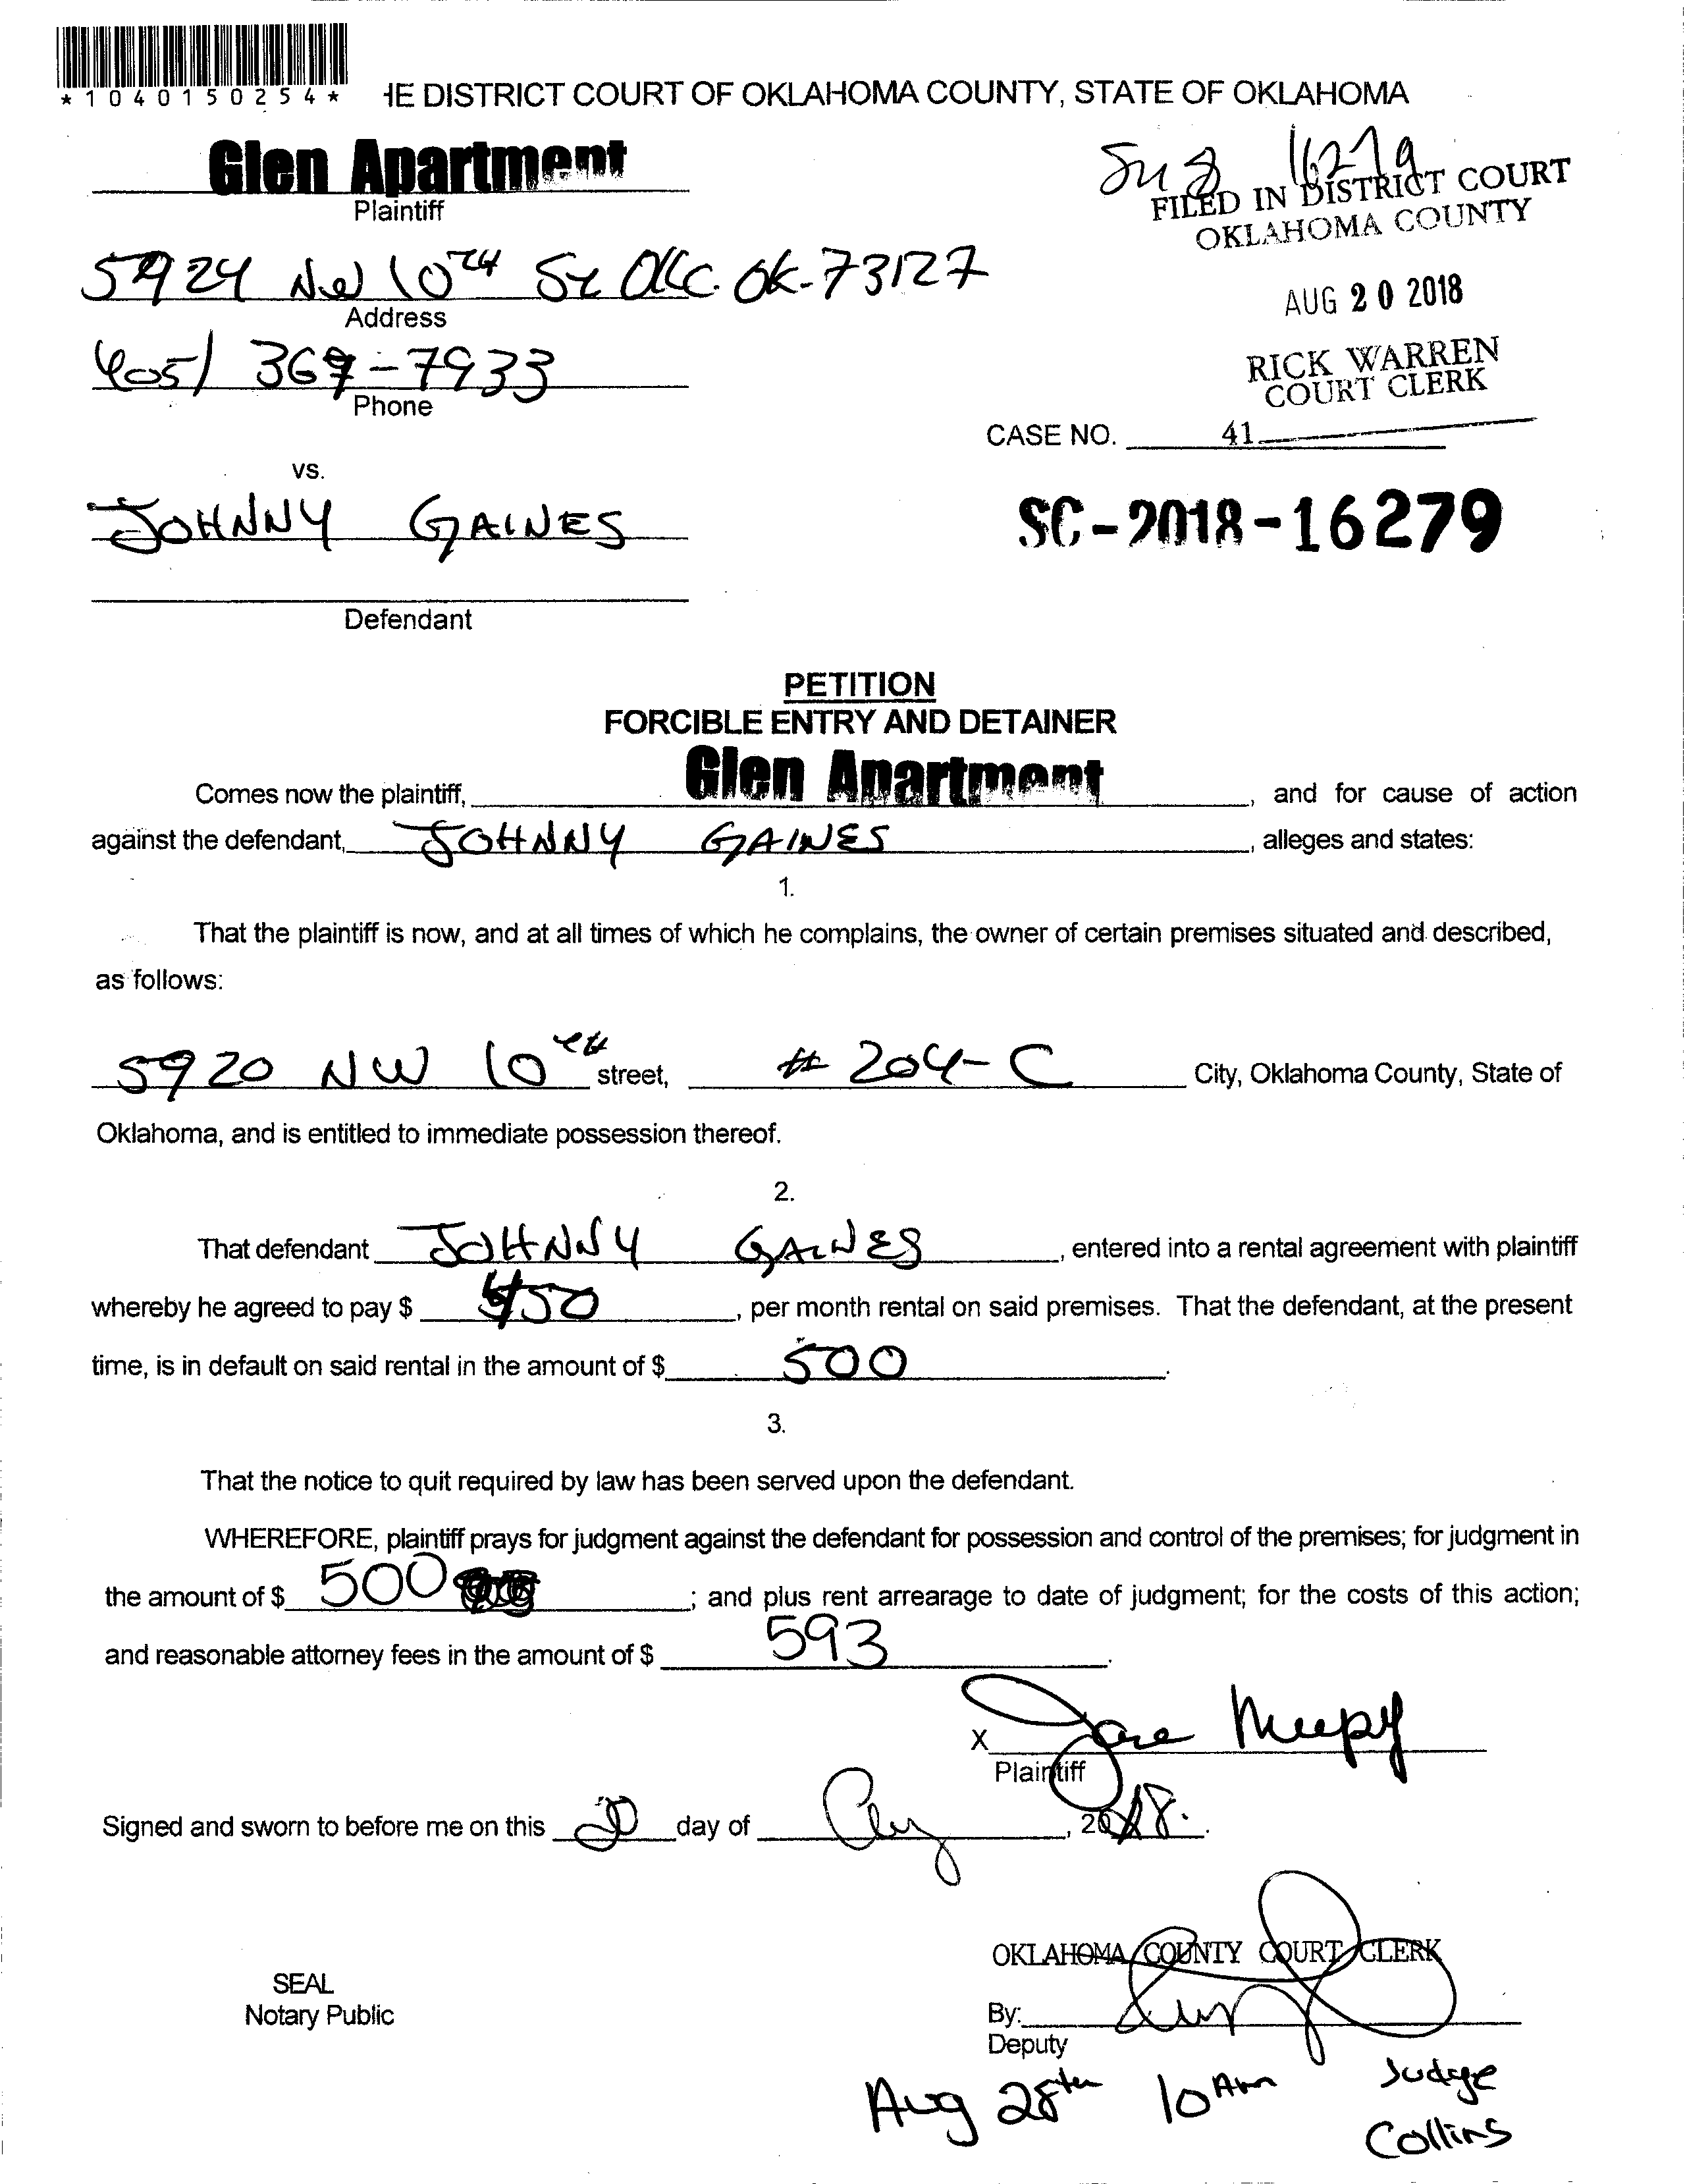 *1040150254*
HE DISTRICT COURT OF OKLAHOMA COUNTY, STATE OF OKLAHOMA
Glen Apartment
Plaintiff
16279
FILED IN DISTRICT COURT
OKLAHOMA COUNTY
5924 NW 10TH St OKC. OK-73127
Address
AUG 20 2018
405) 367-7933
Phone
RICK WARREN
COURT CLERK
CASE NO. 41
vs.
JOHNNY GAINES
SC-2018-16279
Defendant
PETITION
FORCIBLE ENTRY AND DETAINER
Comes now the plaintiff, Glen Apartment, and for cause of action
against the defendant, JOHNNY GAINES, alleges and states:
1.
That the plaintiff is now, and at all times of which he complains, the owner of certain premises situated and described,
as follows:
5920 NW 10TH street, # 204-C City, Oklahoma County, State of
Oklahoma, and is entitled to immediate possession thereof.
2.
That defendant JOHNNY GAINES, entered into a rental agreement with plaintiff
whereby he agreed to pay $ 450, per month rental on said premises. That the defendant, at the present
time, is in default on said rental in the amount of $ 500.
3.
That the notice to quit required by law has been served upon the defendant.
WHEREFORE, plaintiff prays for judgment against the defendant for possession and control of the premises; for judgment in
the amount of $ 500; and plus rent arrearage to date of judgment; for the costs of this action;
and reasonable attorney fees in the amount of $ 593.
X
Plaintiff
Signed and sworn to before me on this 20 day of Aug, 2018.
OKLAHOMA COUNTY COURT CLERK
SEAL
Notary Public
By:
Deputy
Aug 28th 10 Am Judge
Collins